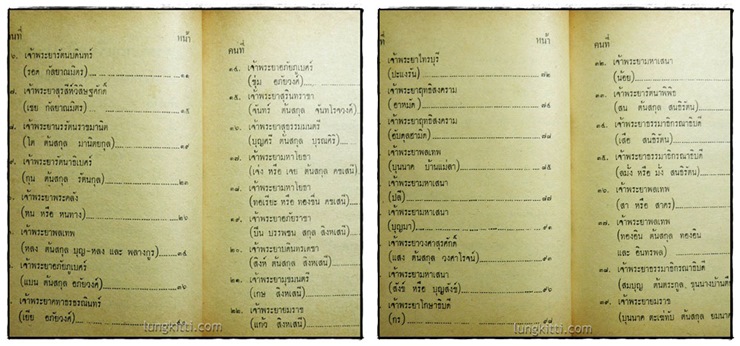 คนที่ หน้า
๖. เจ้าพระยารัตนบดินทร์
(รอด กัลยาณมิตร) ๑๑
๗. เจ้าพระยาสุรสีห์วิสิษฐศักดิ์
(เชย กัลยาณมิตร) ๑๕
๘. เจ้าพระยานรรัตนราชมานิต
(โต ต้นสกุล มานิตยกุล) ๑๙
เจ้าพระยารัตนาธิเบศร์
(กุน ต้นสกุล รัตนกุล) ๒๓
เจ้าพระยาพระคลัง
(หน หรือ หนทาง) ๒๖
เจ้าพระยาพลเทพ
(หลง ต้นสกุล บุญ-หลง และ พลางกูร) ๓๔
เจ้าพระยาอภัยภูเบศร์
(แบน ต้นสกุล อภัยวงศ์) ๓๖
เจ้าพระยาคทาธรธรณินทร์
(เยีย อภัยวงศ์)
คนที่
๑๔. เจ้าพระยาอภัยภูเบศร์
(ชุ่ม อภัยวงศ์)
๑๕. เจ้าพระยาสุรินทราชา
(จันทร์ ต้นสกุล จันทโรจวงศ์)
๑๖. เจ้าพระยาสุธรรมมนตรี
(บุญศรี ต้นสกุล บุรณศิริ)
๑๗. เจ้าพระยามหาโยธา
(เจ่ง หรือ เจย ต้นสกุล คชเสนี)
๑๘. เจ้าพระยามหาโยธา
(ทอเรียะ หรือ ทองชื่น คชเสนี)
๑๙. เจ้าพระยาอภัยราชา
(ปิ่น บรรพชน สกุล สิงหเสนี)
๒๐. เจ้าพระยาบดินทรเดชา
(สิงห์ ต้นสกุล สิงหเสนี)
๒๑. เจ้าพระยามุขมนตรี
(เกษ สิงหเสนี)
๒๒. เจ้าพระยายมราช
(แก้ว สิงหเสนี)
หน้า
เจ้าพระยาไทรบุรี
(ปะแงรัน) ๗๒
เจ้าพระยาฤทธิสงคราม
(อาหมัด) ๗๔
เจ้าพระยาฤทธิสงคราม
(อับดุลฮามิด) ๗๘
เจ้าพระยาพลเทพ
(บุนนาค บ้านแม่ลา) ๘๕
เจ้าพระยามหาเสนา
(ปลี)
เจ้าพระยามหาเสนา
(บุญมา) ๙๑
เจ้าพระยาวงศาสุรศักดิ์
(แสง ต้นสกุล วงศาโรจน์) ๙๓
เจ้าพระยามหาเสนา
(สิงห์ หรือ บุญสิงห์) ๙๖
เจ้าพระยาโกษาธิบดี
(กร) ๙๘
คนที่
๓๒. เจ้าพระยามหาเสนา
(น้อย)
๓๓. เจ้าพระยารัตนาพิพิธ
(สน ต้นสกุล สนธิรัตน)
๓๔. เจ้าพระยาธรรมาธิกรณาธิบดี
(เสือ สนธิรัตน)
๓๕. เจ้าพระยาธรรมาธิกรณาธิบดี
(ลมั่ง หรือ มั่ง สนธิรัตน)
๓๖. เจ้าพระยาพลเทพ
(สา หรือ สาคร)
๓๗. เจ้าพระยาพลเทพ
(ทองอิน ต้นสกุล ทองอิน
และ อินทรพล)
๓๘. เจ้าพระยาธรรมาธิกรณาธิบดี
(สมบุญ ต้นตระกูล, ขุนนางบ้าน
๓๙. เจ้าพระยายมราช
(บุนนาค ต้นสกุล
lungkitti.com
lungkitti.com